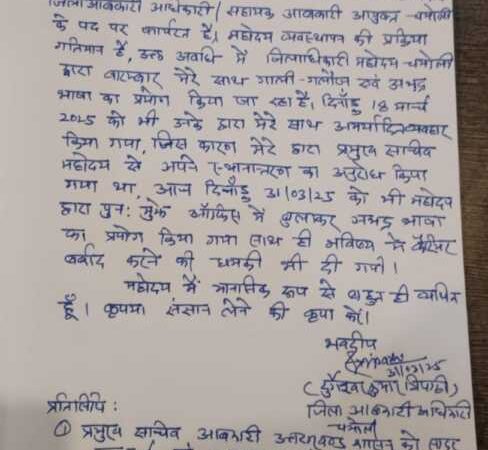 जिला आबकारी अधिकारी / सहायक आबकारी आयुक्त - चमोली
के पद पर कार्यरत हूँ, महोदय व्यवस्थापन की प्रक्रिया
गतिमान है, उक्त अवधि में जिलाधिकारी महोदय - चमोली
द्वारा बारम्बार मेरे साथ गाली-गलौज एवं अभद्र
भाषा का प्रयोग किया जा रहा है, दिनाँक 18 मार्च
2025 को भी उनके द्वारा मेरे साथ अमर्यादित व्यवहार
किया गया, जिस कारण मेरे द्वारा प्रमुख सचिव
महोदय से अपने स्थानान्तरण का अनुरोध किया
गया था, आज दिनाँक 31/03/25 को भी महोदय
द्वारा पुनः मुझे ऑफिस में बुलाकर अभद्र भाषा
का प्रयोग किया गया साथ ही भविष्य में कैरियर
बर्बाद करने की धमकी भी दी गयी।
महोदय मैं मानसिक रूप से बहुत ही व्यथित
हूँ। कृपया संज्ञान लेने की कृपा करें।
भवदीय
31/03/25
(दुर्गेश्वर कुमार त्रिपाठी)
जिला आबकारी अधिकारी
चमोली
प्रतिलिपि :
① प्रमुख सचिव आबकारी उत्तराखण्ड शासन को सादर